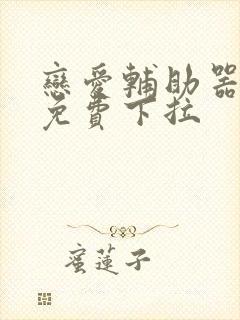 戀愛輔助器
免費下拉
蜜蓮子